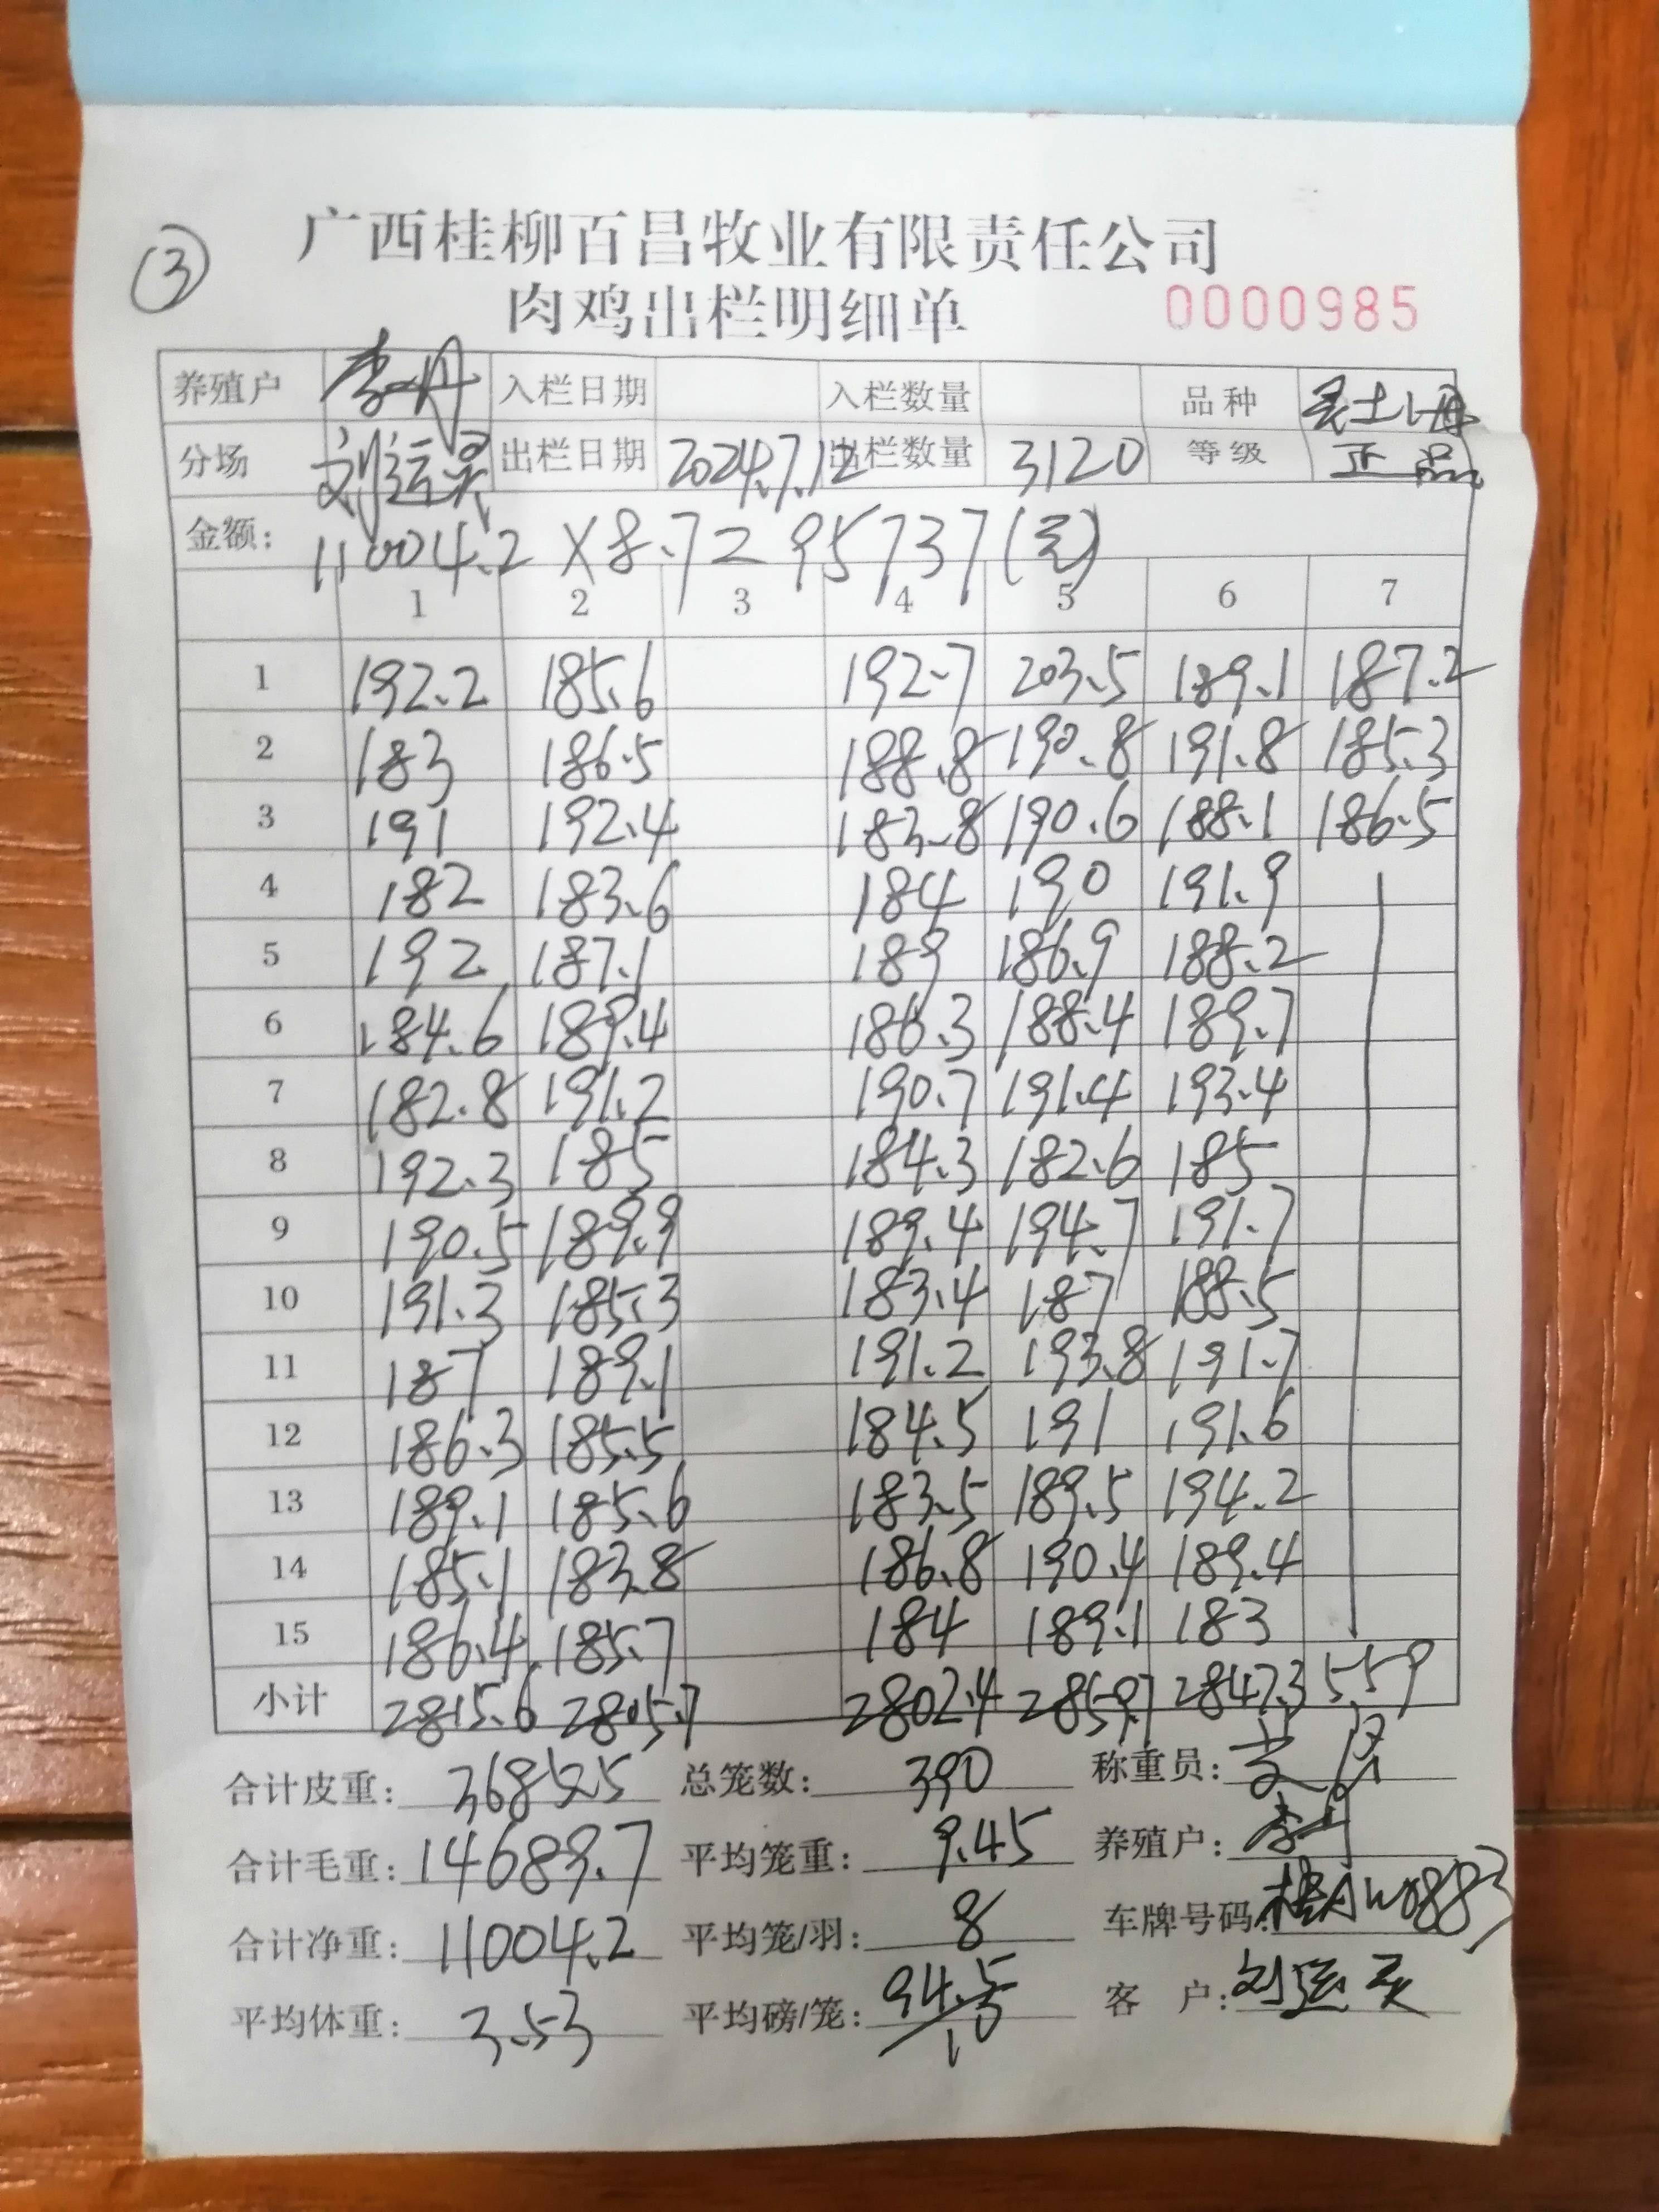 ③
广西桂柳百昌牧业有限责任公司
肉鸡出栏明细单 0000985
养殖户 李丹 入栏日期 入栏数量 品种 土
分场 刘运 出栏日期 2024.7.12 出栏数量 3120 等级 正品
金额: 11004.2 X 8.7 = 95737(元)
1 2 3 4 5 6 7
1 192.2 185.6 192.7 203.5 189.1 187.2
2 183 186.5 188.8 190.8 191.8 185.3
3 191 192.4 183.8 190.6 188.1 186.5
4 182 183.6 184 190 191.9
5 192 187.1 189 186.9 188.2
6 184.6 189.4 186.3 188.4 189.7
7 182.8 191.2 190.7 191.4 193.4
8 192.3 185 184.3 182.6 185
9 190.5 189.9 189.4 194.7 191.7
10 191.3 185.3 183.4 187 188.5
11 187 189.1 191.2 193.8 191.7
12 186.3 185.5 184.5 191 191.6
13 189.1 185.6 183.5 189.5 194.2
14 185.1 183.8 186.8 190.4 189.4
15 186.4 185.7 184 189.1 183
小计 2815.6 2805.7 2802.4 2859.7 2847.3 559
合计皮重: 3685.5 总笼数: 390 称重员:
合计毛重: 14689.7 平均笼重: 9.45 养殖户: 李丹
合计净重: 11004.2 平均笼/羽: 8 车牌号码: 桂AW0883
平均体重: 3.53 平均磅/笼: 94.5/10 客 户: 刘运